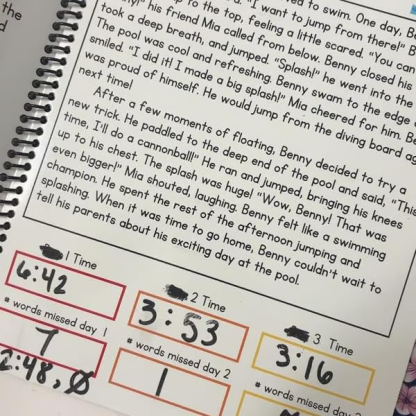 the
d to swim. One day, Be
to the top, feeling a little scared. "You can
"I want to jump from there!"
his friend Mia called from below. Benny closed his
took a deep breath, and jumped. "Splash!" he went into the
The pool was cool and refreshing. Benny swam to the edge
smiled. "I did it! I made a big splash!" Mia cheered for him. Be
was proud of himself. He would jump from the diving board
next time!
After a few moments of floating, Benny decided to try a
new trick. He paddled to the deep end of the pool and said, "This
time, I'll do a cannonball!" He ran and jumped, bringing his knees
up to his chest. The splash was huge! "Wow, Benny! That was
even bigger!" Mia shouted, laughing. Benny felt like a swimming
champion. He spent the rest of the afternoon jumping and
splashing. When it was time to go home, Benny couldn't wait to
tell his parents about his exciting day at the pool.
1 Time
6:42
2 Time
3:53
3 Time
3:16
# words missed day 1
7
2:48, Ø
# words missed day 2
1
# words missed day